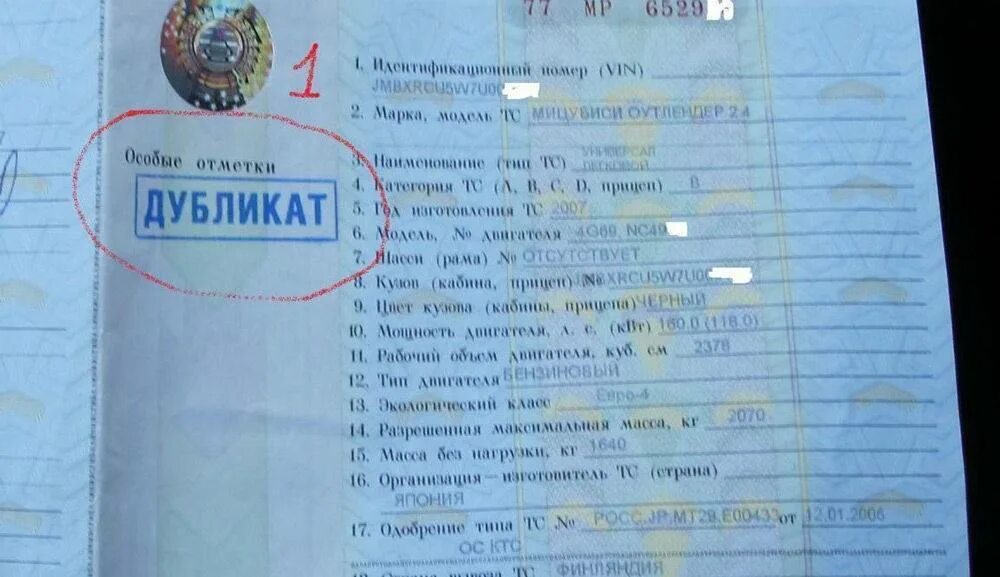 77 МР 6529
1
1. Идентификационный номер (VIN)
JMBXRCU5W7U00
2. Марка, модель ТС МИЦУБИСИ ОУТЛЕНДЕР 2.4
Особые отметки
ДУБЛИКАТ
УНИВЕРСАЛ
3. Наименование (тип ТС) ЛЕГКОВОЙ
4. Категория ТС (A, B, C, D, прицеп) B
5. Год изготовления ТС 2007
6. Модель, № двигателя 4G69, NC49
7. Шасси (рама) № ОТСУТСТВУЕТ
8. Кузов (кабина, прицеп) № JMBXRCU5W7U00
9. Цвет кузова (кабины, прицепа) ЧЕРНЫЙ
10. Мощность двигателя, л. с. (кВт) 160.0 (118.0)
11. Рабочий объем двигателя, куб. см 2378
12. Тип двигателя БЕНЗИНОВЫЙ
13. Экологический класс Евро-4
14. Разрешенная максимальная масса, кг 2070
15. Масса без нагрузки, кг 1640
16. Организация—изготовитель ТС (страна)
ЯПОНИЯ
17. Одобрение типа ТС № РОСС.JP.МТ29.Е00433 от 12.01.2006
ОС КТС
18. Страна вывоза ТС ФИНЛЯНДИЯ